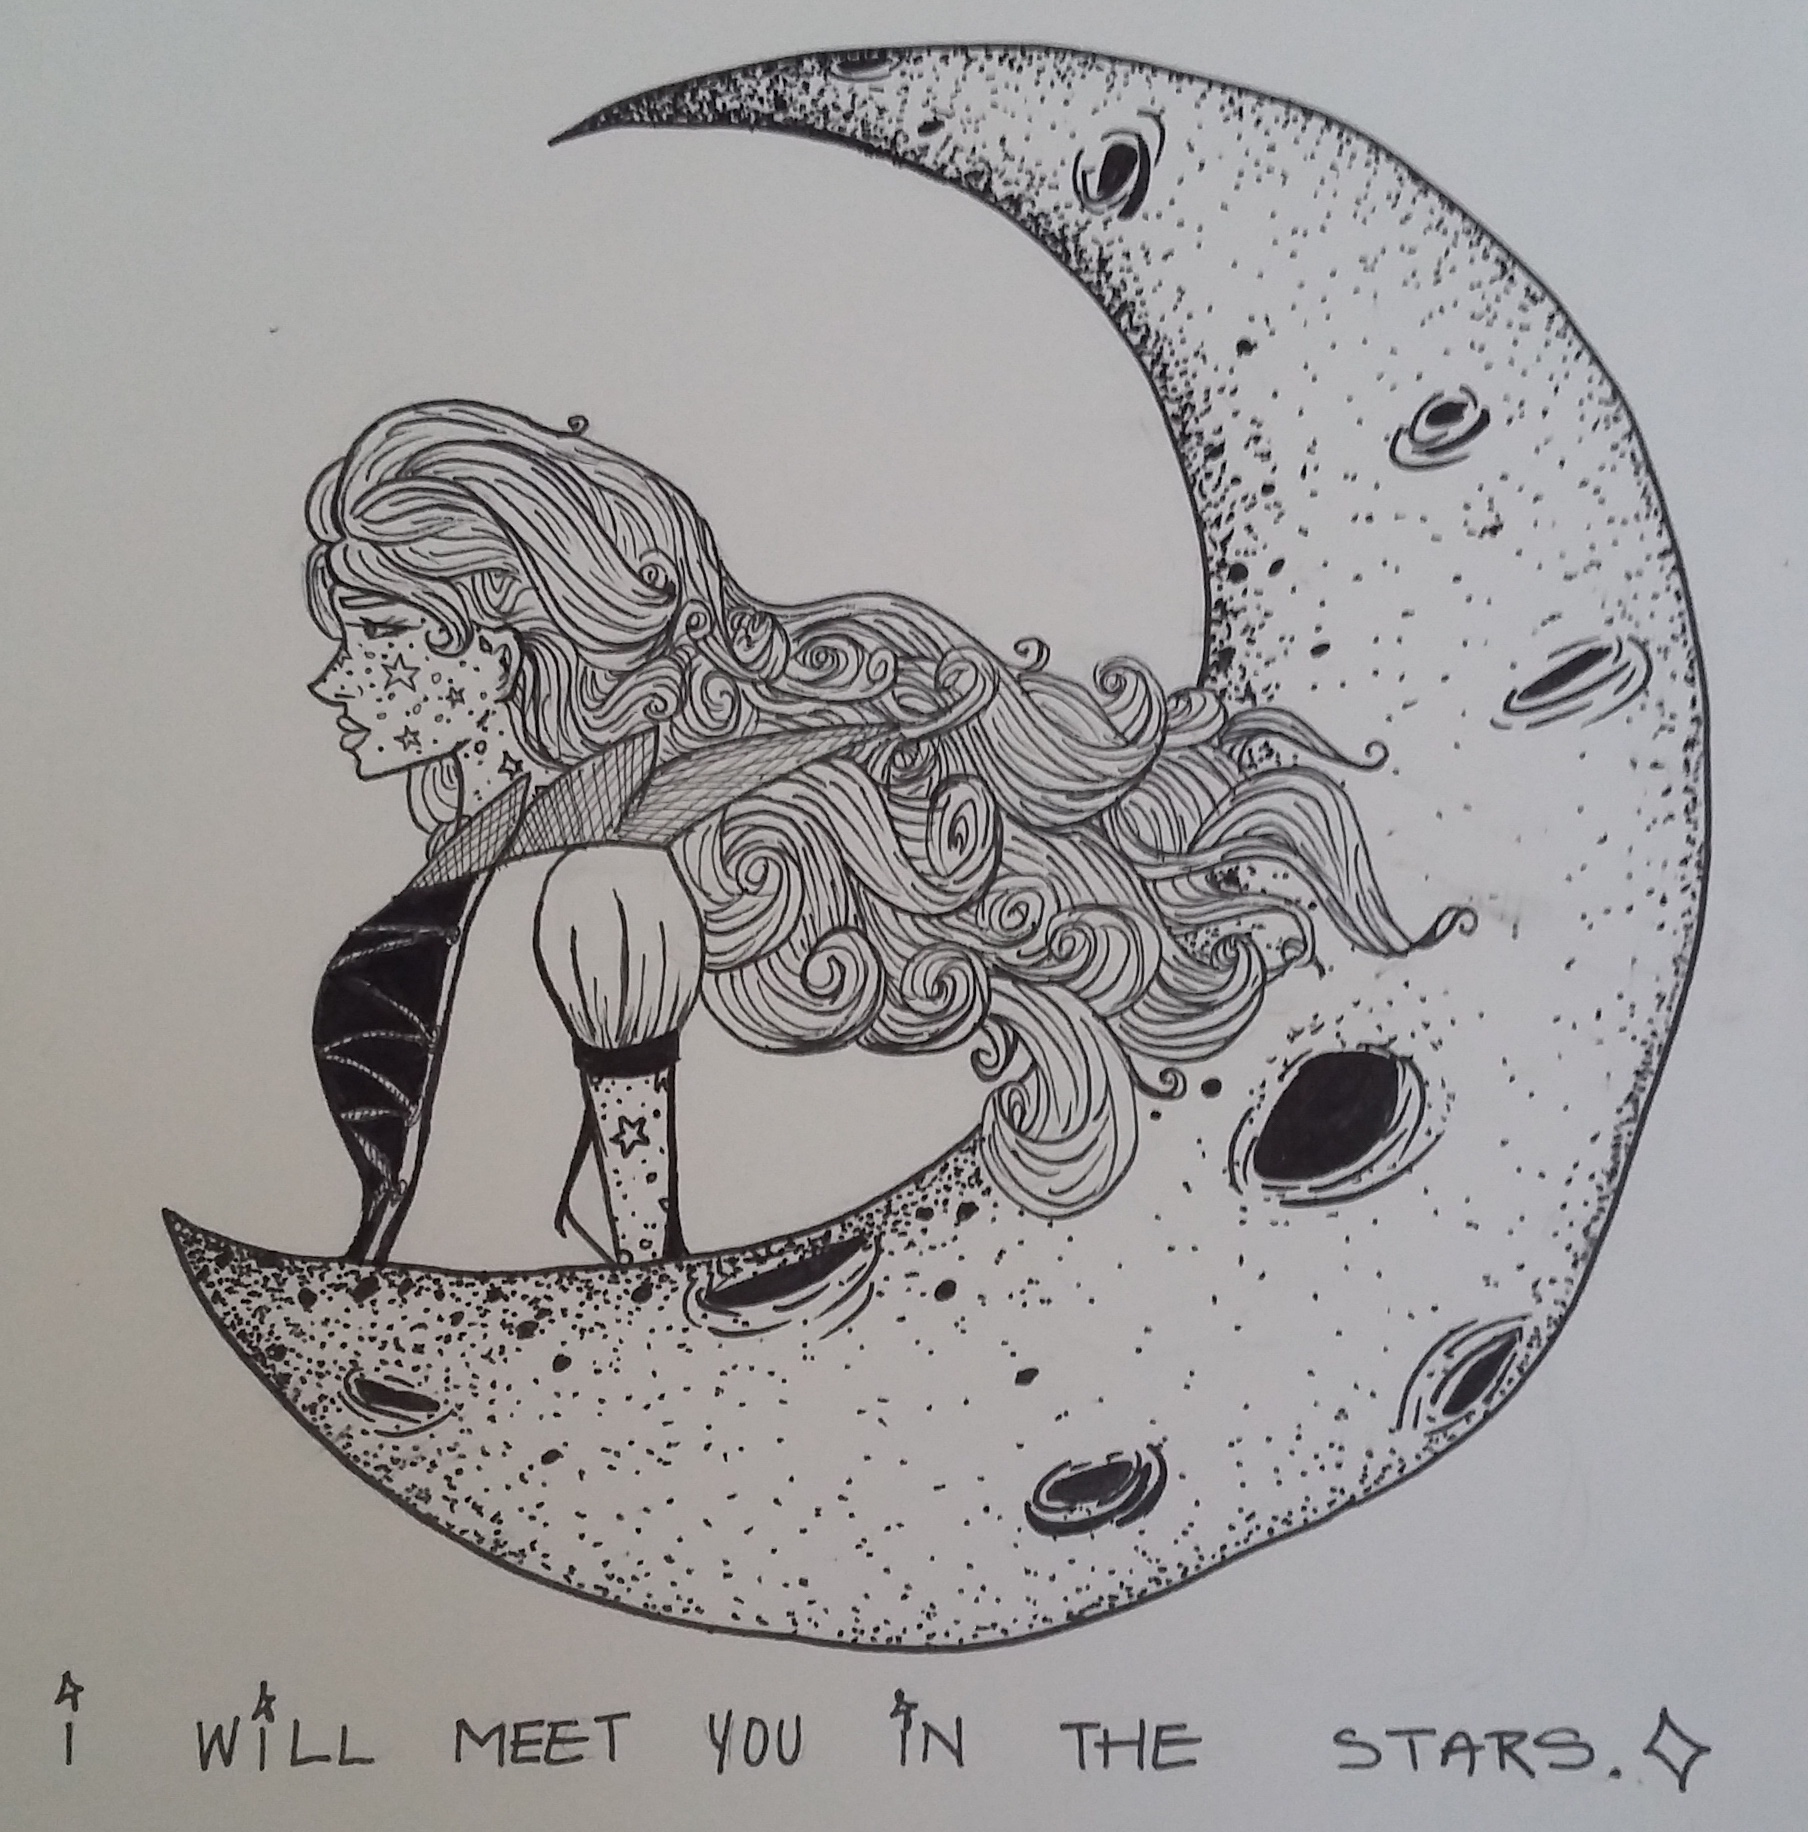 i WiLL MEET YOU iN THE STARS.